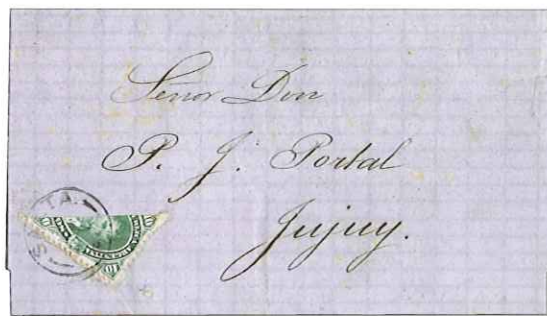 Señor Don
P. J. Portal
Jujuy.
10
10